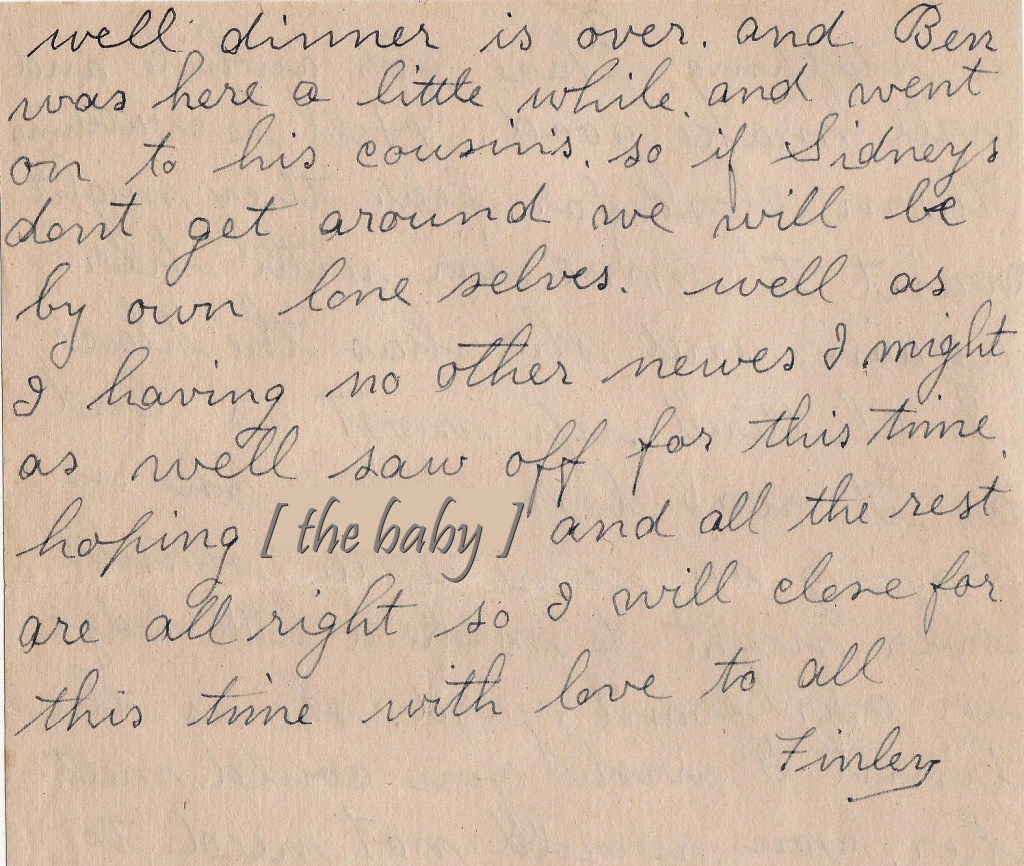 well dinner is over. and Ben
was here a little while and went
on to his cousin's. so if Sidneys
dont get around we will be
by own lone selves. well as
I having no other newes I might
as well saw off for this time
hoping [ the baby ] and all the rest
are all right so I will close for
this time with love to all
Finley